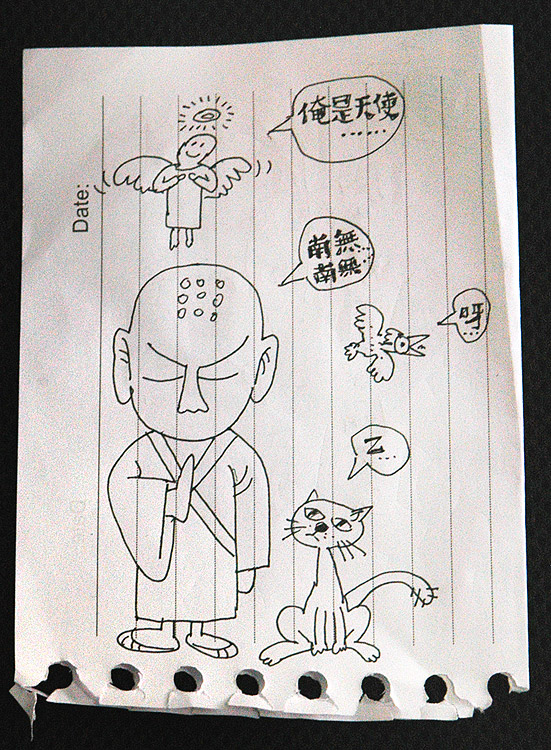 Date:
俺是天使
……
南無…
南無…
呀
…
Z
…